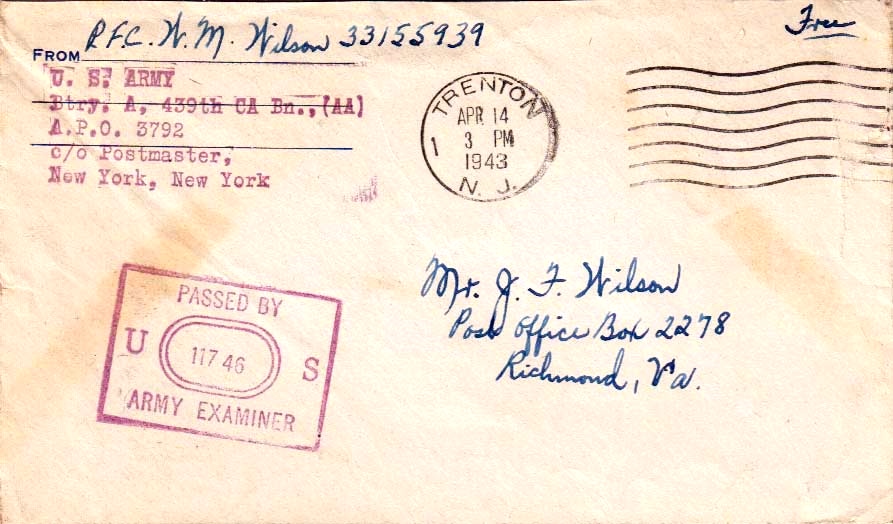 Free
FROM P.F.C. W. M. Wilson 33155939
U. S. ARMY
Btry. A, 439th CA Bn., (AA)
A.P.O. 3792
c/o Postmaster,
New York, New York
TRENTON
APR 14
1 3 PM
1943
N. J.
Mr. J. F. Wilson
Post Office Box 2278
Richmond, Va.
PASSED BY
U 11746 S
ARMY EXAMINER